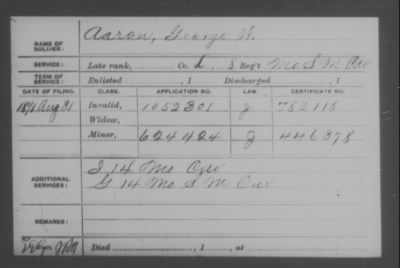 NAME OF SOLDIER: Aaron, George W.
SERVICE: Late rank, Co. L, 8 Reg't Mo S M Cav
TERM OF SERVICE: Enlisted , 1 Discharged , 1
DATE OF FILING. CLASS. APPLICATION NO. LAW. CERTIFICATE NO.
1891 Aug 31 Invalid, 1052301 J 782113
Widow,
Minor, 624424 J 446378
ADDITIONAL SERVICES: I 14 Mo Cav
G 14 Mo S M Cav
REMARKS:
Died , 1 , at